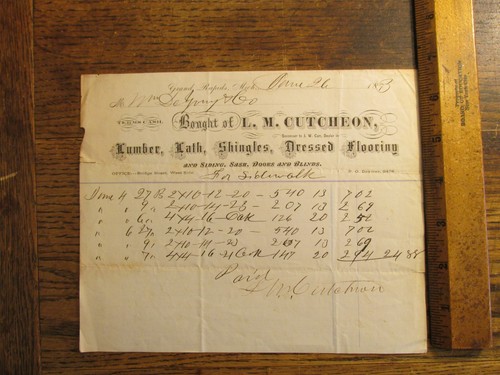 Grand Rapids, Mich. June 26 1873
Mr Wm DeYoung & Co
Bought of L. M. CUTCHEON,
Lumber, Lath, Shingles, Dressed Flooring
AND SIDING, SASH, DOORS AND BLINDS.
For Sidewalk
June 4 27 Ps 2x10-12-20 - 540 13 7 02
" " 9 " 2x10-14-23 - 207 13 2 69
" " 6 " 4x4-16-Oak 126 20 2 52
" 6 27 " 2x10-12-20 - 540 13 7 02
" " 9 " 2x10-14-23 207 13 2 69
" " 7 " 4x4-16-21 Oak 147 20 2 94 24 88
Paid
L M Cutcheon